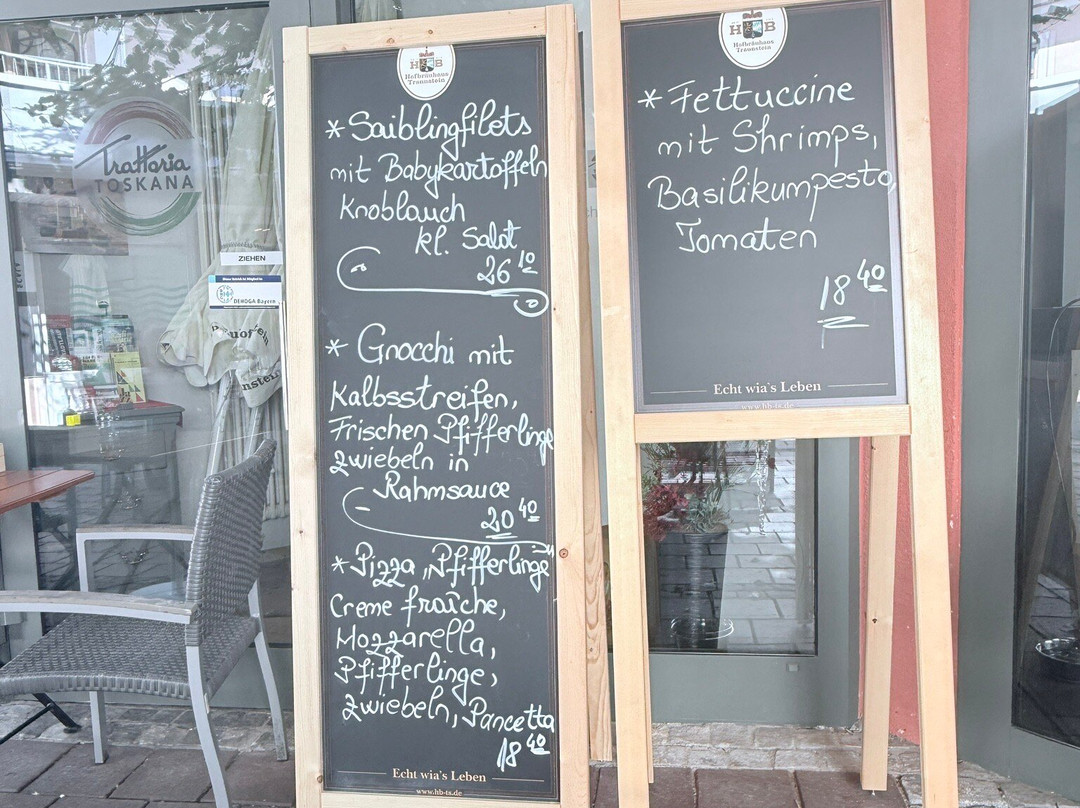 Trattoria
TOSKANA
ZIEHEN
DEHOGA Bayern
HB
Hofbräuhaus
Traunstein
*Saiblingfilets
mit Babykartoffeln
Knoblauch
kl. Salat
26 10
* Gnocchi mit
Kalbsstreifen,
Frischen Pfifferlinge
zwiebeln in
Rahmsauce
20 40
*Pizza „Pfifferlinge"
Creme fraîche,
Mozzarella,
Pfifferlinge,
zwiebeln, Pancetta
18 40
Echt wia`s Leben
www.hb-ts.de
HB
Hofbräuhaus
Traunstein
*Fettuccine
mit Shrimps,
Basilikumpesto,
Tomaten
18 40
Echt wia`s Leben
www.hb-ts.de